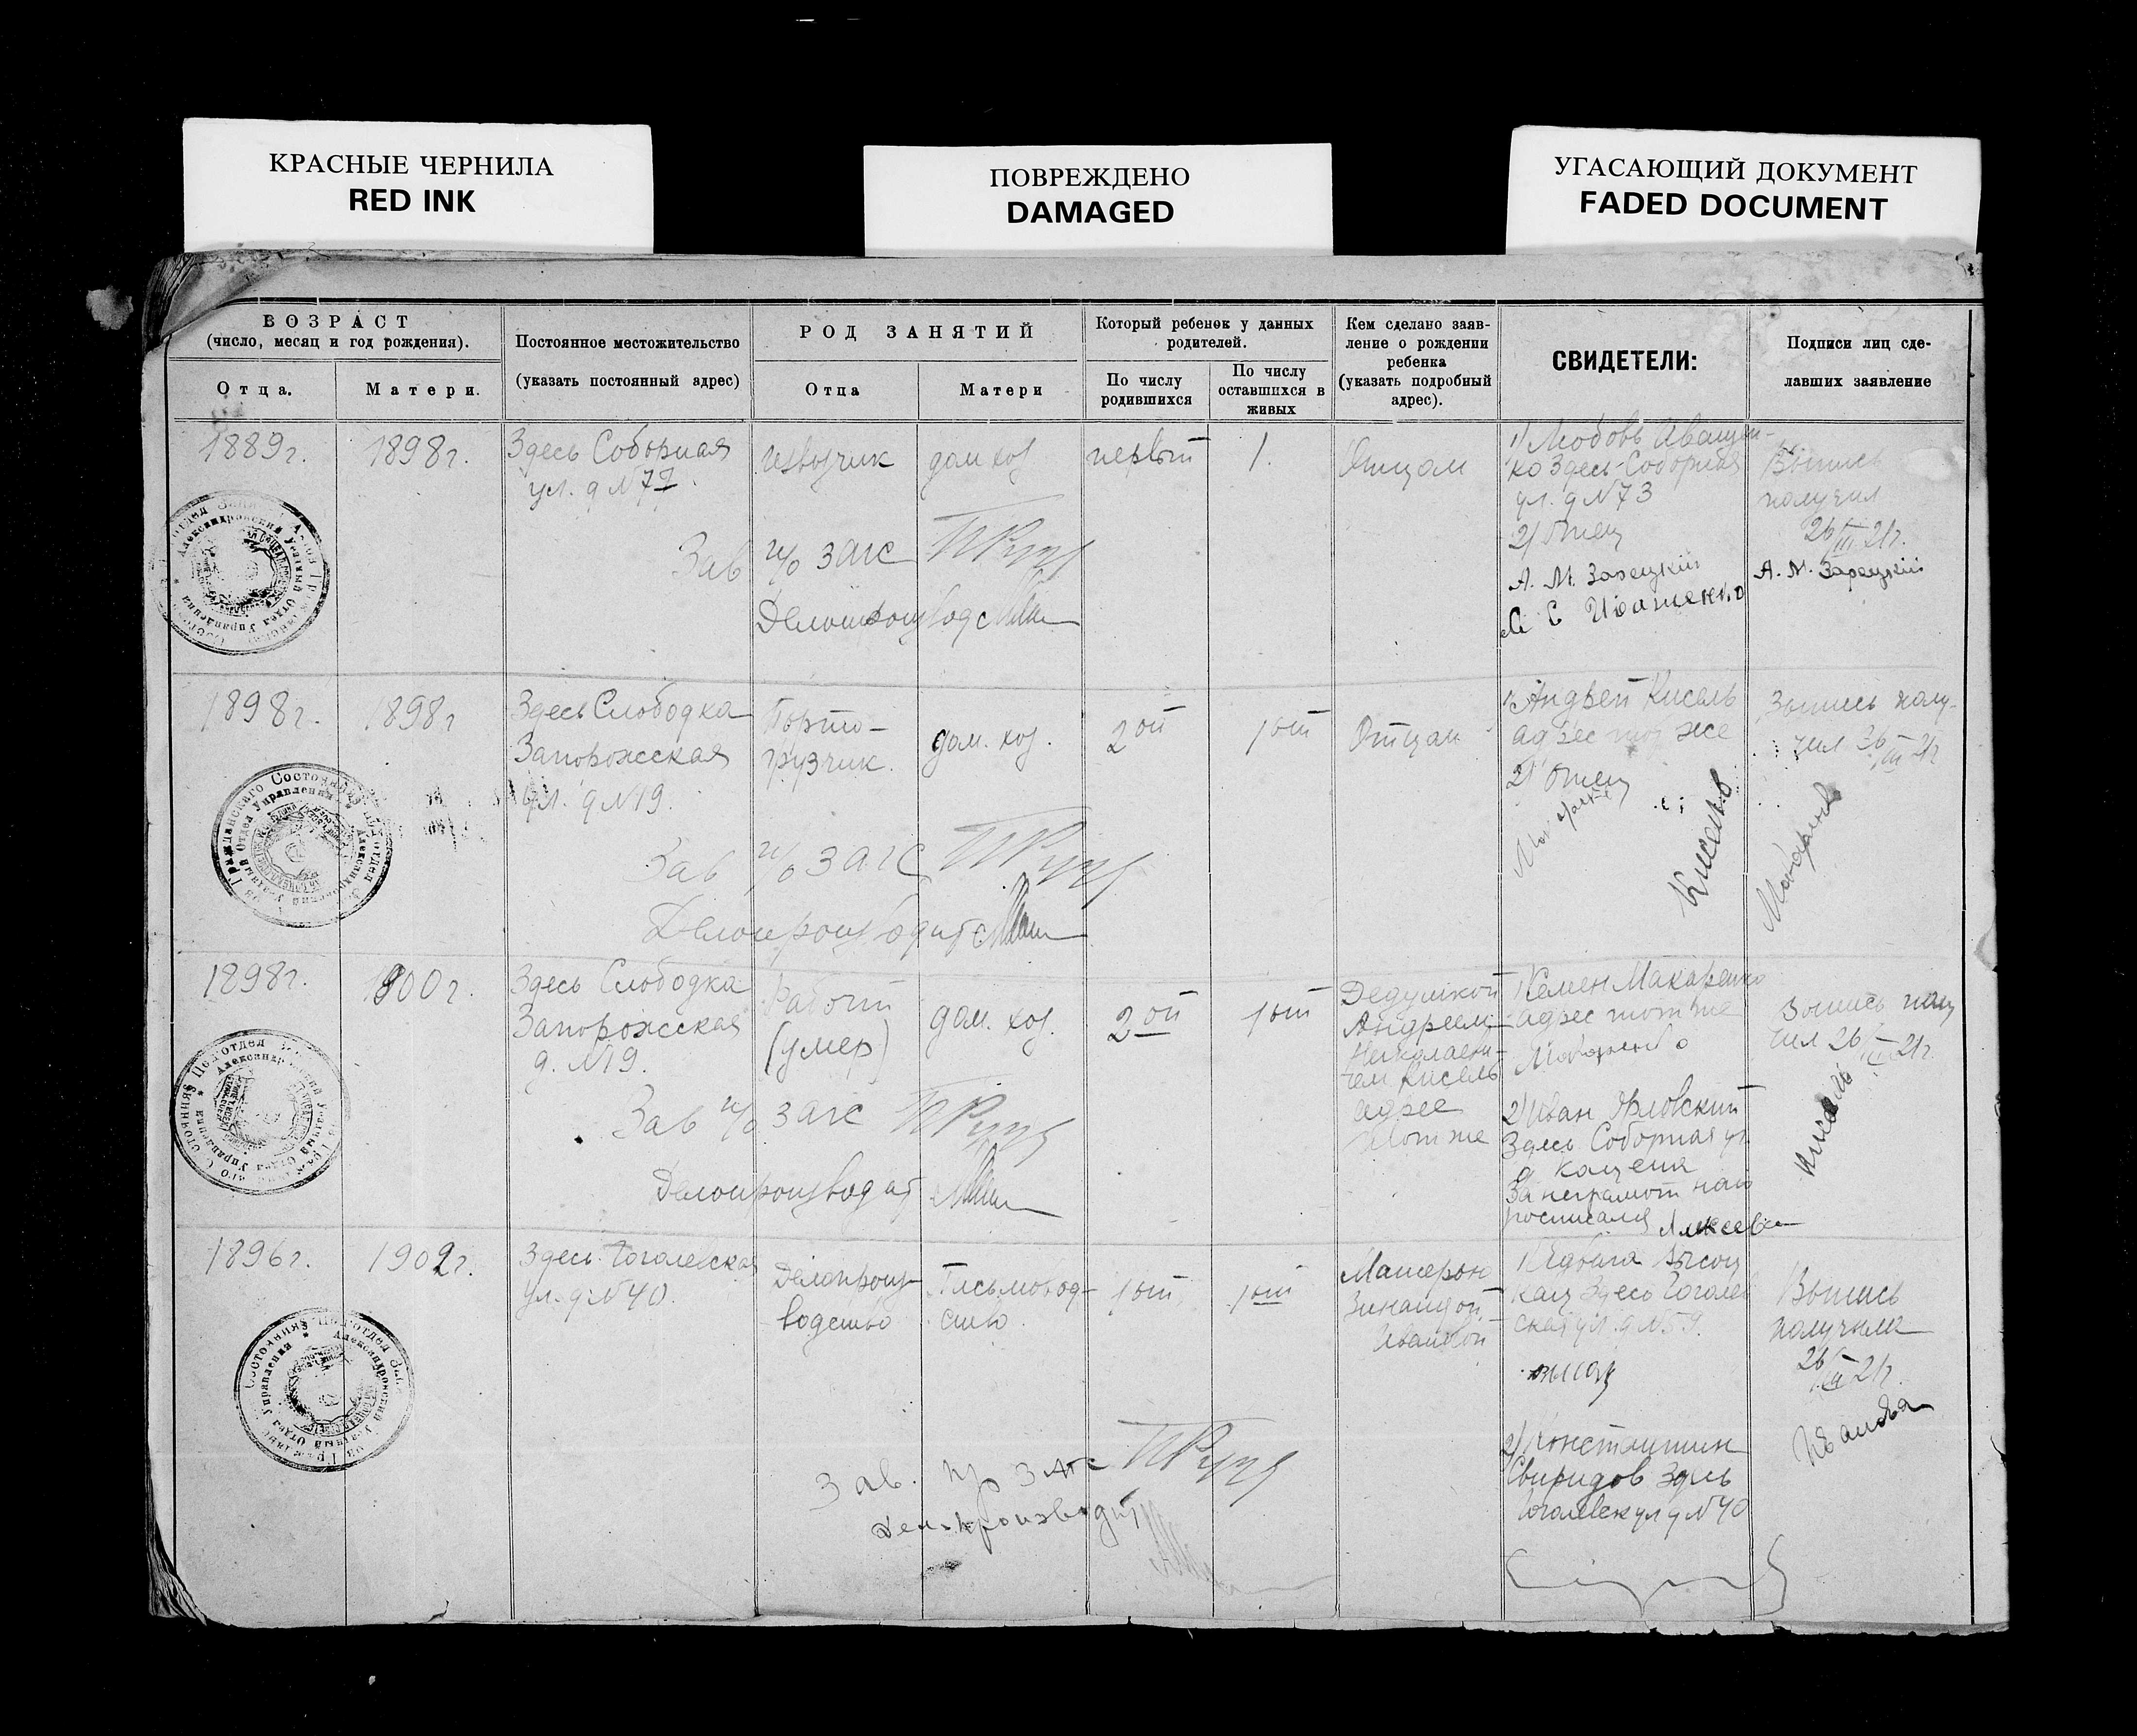 КРАСНЫЕ ЧЕРНИЛА
RED INK
ПОВРЕЖДЕНО
DAMAGED
УГАСАЮЩИЙ ДОКУМЕНТ
FADED DOCUMENT
ВОЗРАСТ
(число, месяц и год рождения).
Отца.
Матери.
Постоянное местожительство
(указать постоянный адрес)
РОД ЗАНЯТИЙ
Отца
Матери
Который ребенок у данных
родителей.
По числу
родившихся
По числу
оставшихся в
живых
Кем сделано заяв-
ление о рождении
ребенка
(указать подробный
адрес).
СВИДЕТЕЛИ:
Подписи лиц сде-
лавших заявление
1889г.
1898г.
Здесь Соборная
ул. д №
извозчик
дом. хоз
первый
1.
Отцом
1) Любовь Иващен-
ко Здесь Соборная
ул. д №73
2) Отец
А. М. Зарецкий
С Иващенко
Выпись
получил
26/III 21г.
А. М. Зарецкий
Зав п/о ЗАГС
Делопроизвод
1898г.
1898г
Здесь Слободка
Запорожская
ул. д №19.
Порто-
грузчик.
дом. хоз.
2ой
1ый
Отцом
1) Андрей Кисель
адрес тот же
2) Отец
Кисель
Выпись полу-
чил 26/III 21г
Зав п/о ЗАГС
Делопроизводит
1898г.
1900г.
Здесь Слободка
Запорожская
д. №19.
Рабочий
(умер)
дом. хоз.
2ой
1ый
Дедушкой
Андреем
Николаеви-
чем Кисель
адрес
тот же
Макаренко
адрес тот же
2) Иван Орловский
Здесь Соборная ул.
За неграмотного
росписался Алексеев
Выпись полу
чил 26/III 21г.
Кисель
Зав п/о ЗАГС
Делопроизводит
1896г.
1902г.
Здесь Гоголевская
ул. д №40.
Делопроиз-
водство
Письмовод-
ство.
1ый
1ый
Матерью
Зинаидой
Ивановой
Здесь Гоголев
ская ул. д №59.
2) Константин
Свиридов Здесь
Гоголевск ул д №40
Выпись
получила
26/III 21г.
Иванова
Зав. п/о ЗАГС
Делопроизводит